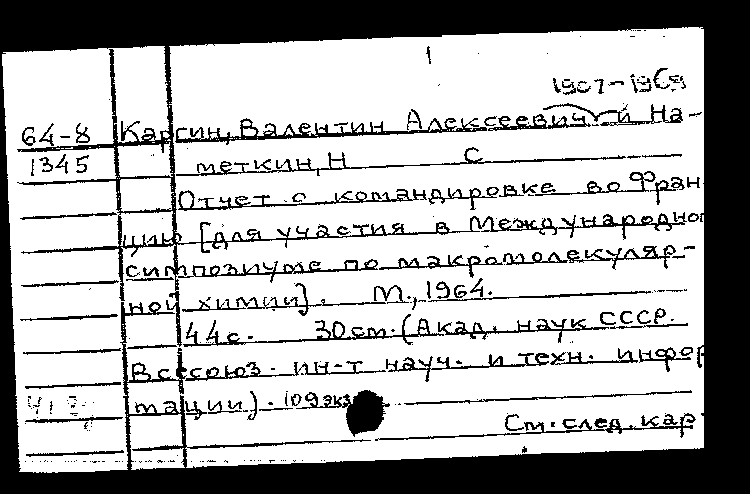 1
1907-1969
64-8 Карсин, Валентин Алексеевич и На-
1345 меткин, Н С
Отчет о командировке во Фран
цию [для участия в Международно
симпозиуме по макромолекуляр-
ной химии]. М., 1964.
44с. 30 см. (Акад. наук СССР.
Всесоюз. ин-т науч. и техн. инфор
мации). 109 экз.
См. след. кар